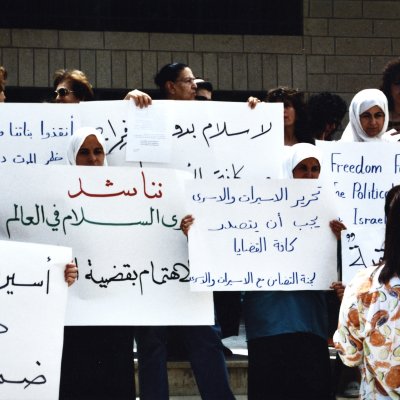 أنقذوا بناتنا
خطر الموت
لا سلام بدو
نناشد
رى السلام في العالم
لاهتمام بقضية ا
تحرير الاسيرات والاسرى
يجب أن يتصدر
كافة القضايا
لجنة التضامن مع الاسيرات والاسرى
Freedom F
he Politica
Israel
أسير
ضم